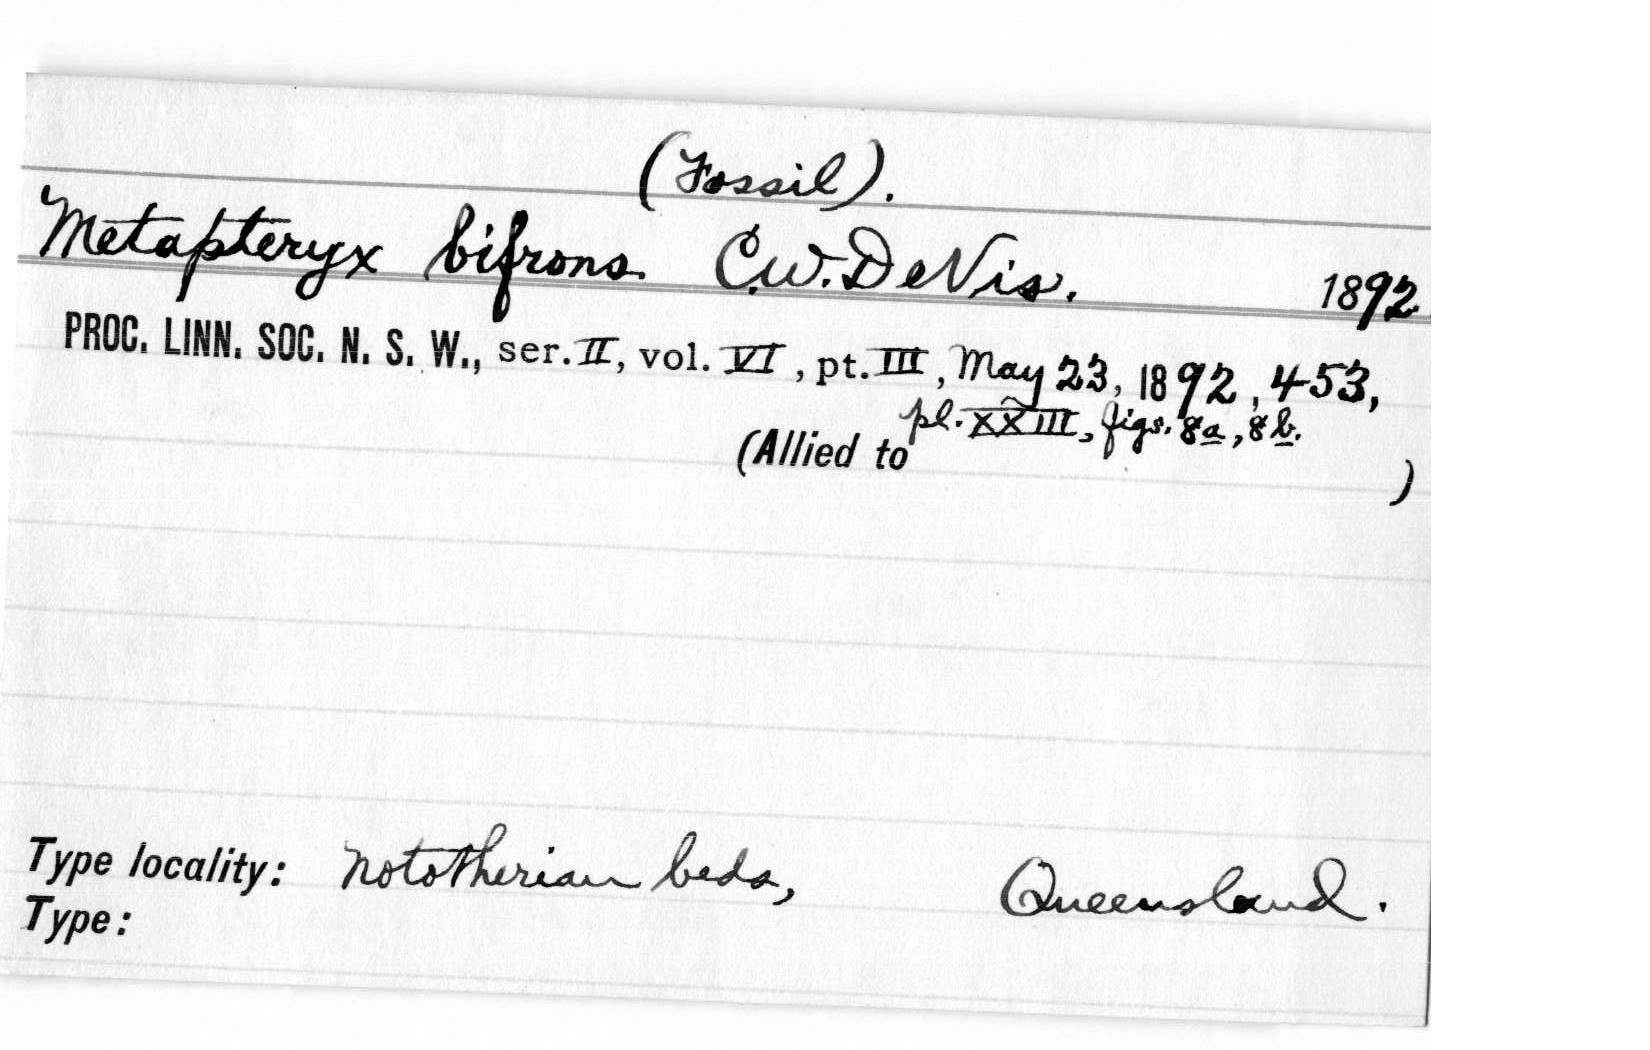 (Fossil).
Metapteryx bifrons. C.W. DeVis. 1892
PROC. LINN. SOC. N. S. W., ser. II, vol. VI, pt. III, May 23, 1892, 453,
pl. XXIII, figs. 8a, 8b.
(Allied to )
Type locality: nototherian beds, Queensland.
Type: